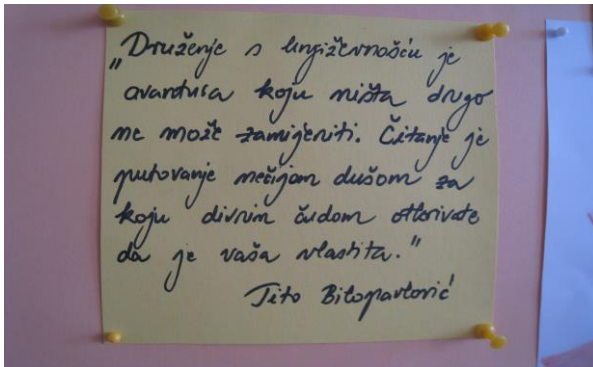 „Druženje s književnošću je
avantura koju ništa drugo
ne može zamijeniti. Čitanje je
putovanje nečijom dušom za
koju divnim čudom otkrivate
da je vaša vlastita."
Tito Bilopavlović